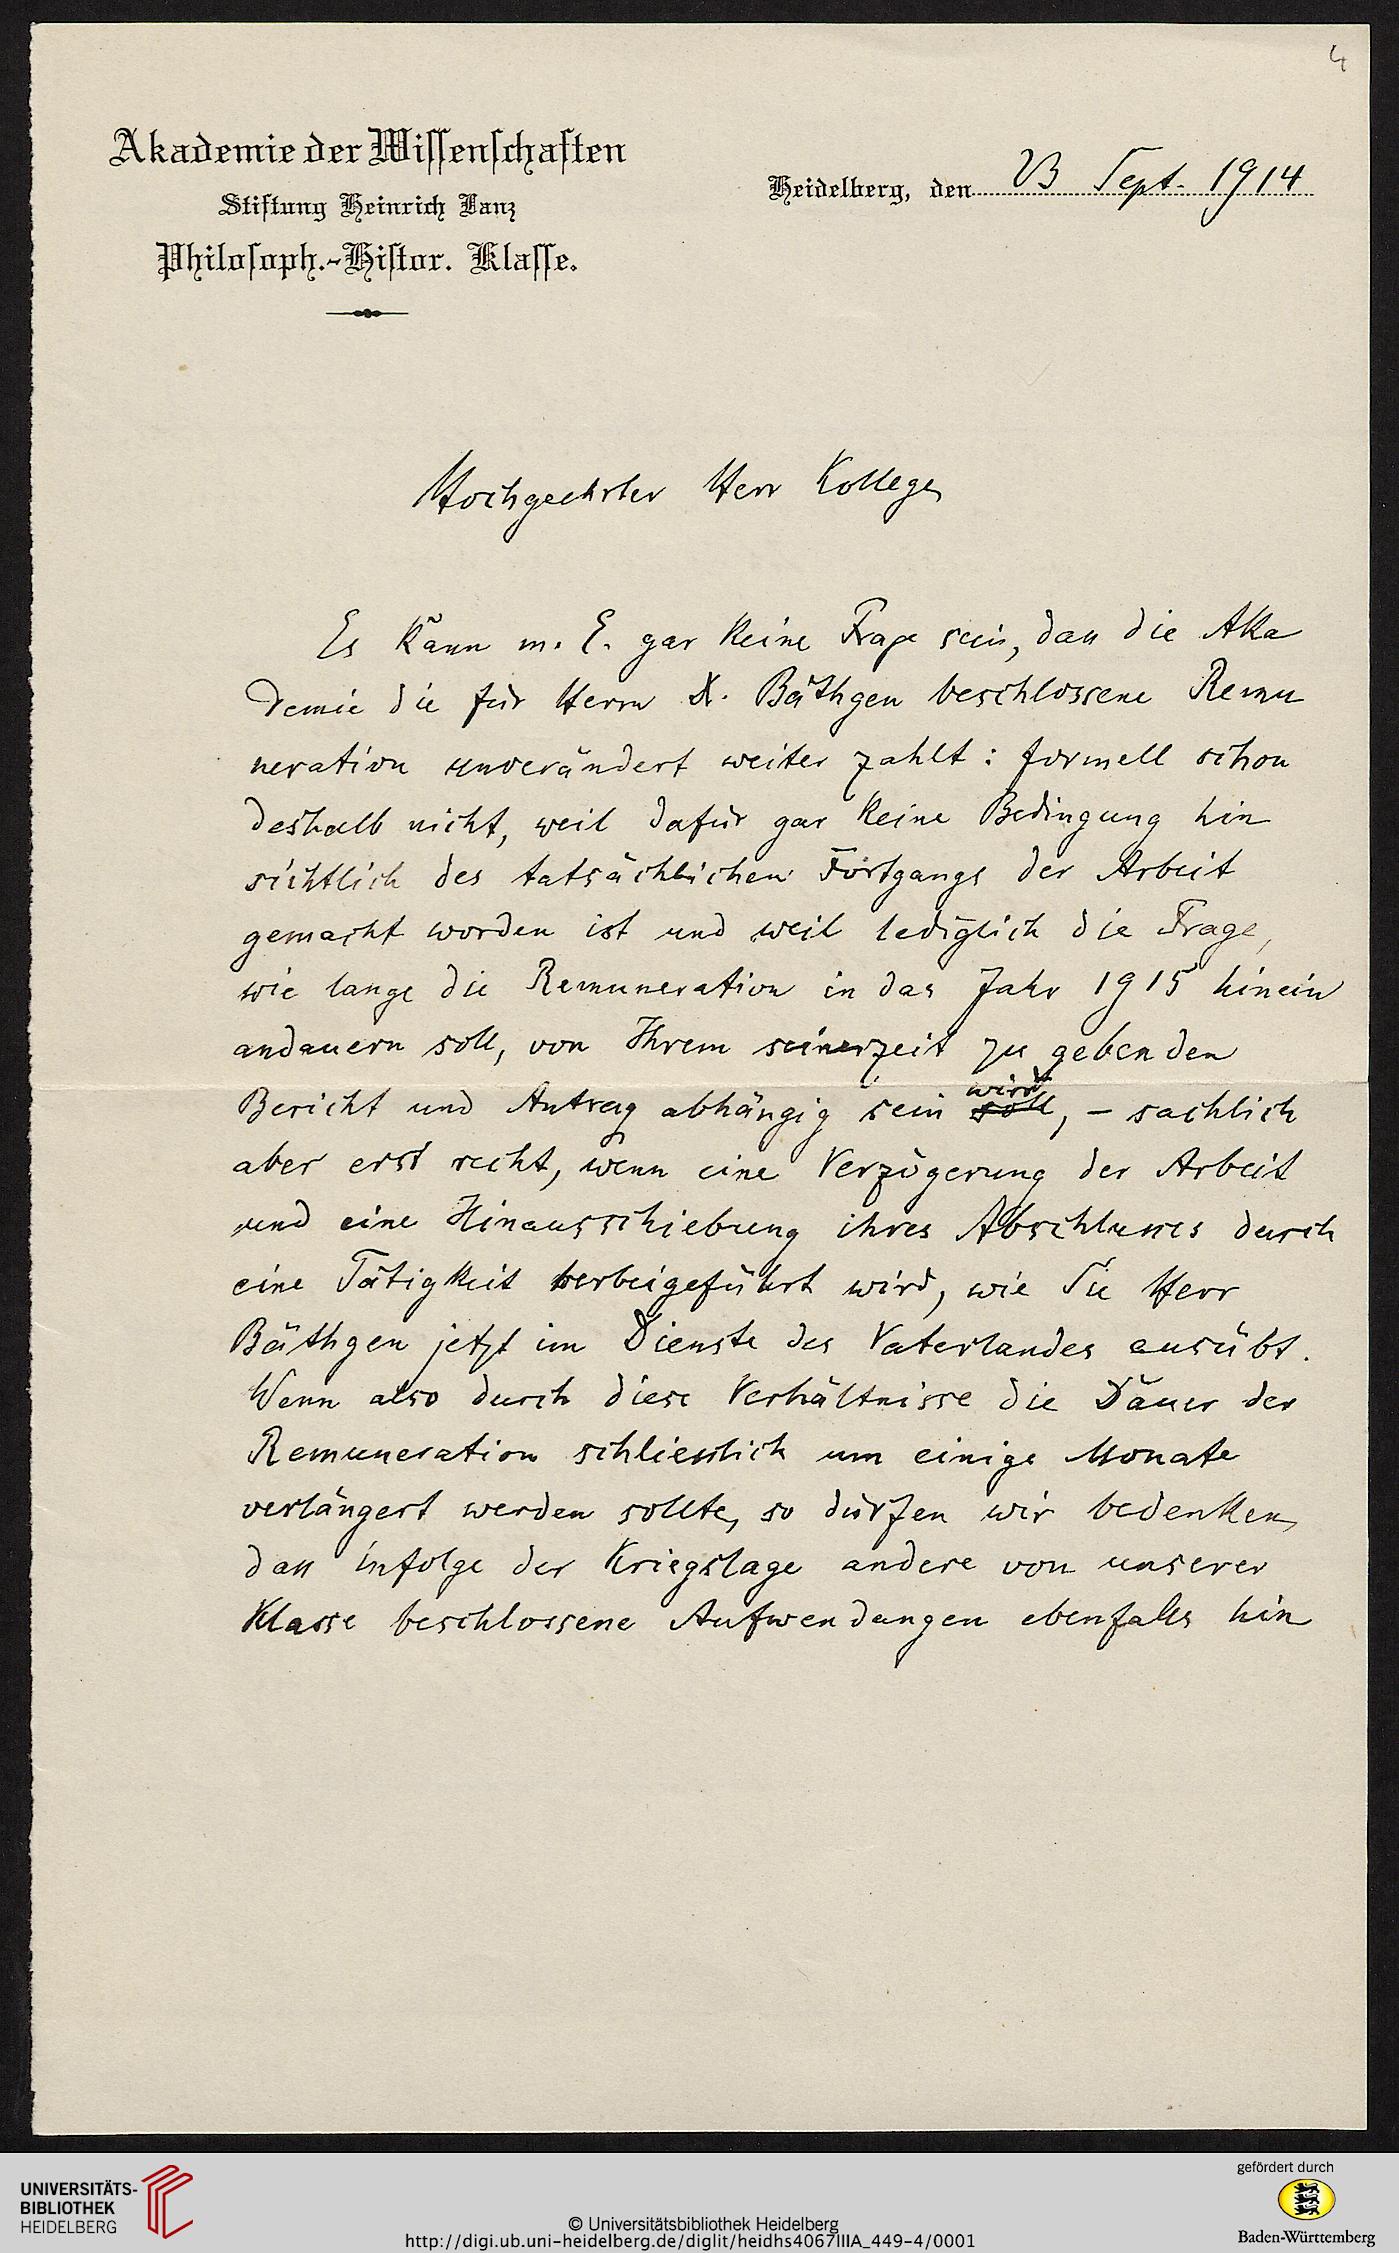 4
Akademie der Wissenschaften
Stiftung Heinrich Lanz
Philosoph.-Histor. Klasse.
Heidelberg, den 23 Sept. 1914
Hochgeehrter Herr Kollege,
Es kann m. E. gar keine Frage sein, dass die Aka
demie die für Herrn D. Bäthgen beschlossene Remu
neration unverändert weiter zahlt: formell schon
deshalb nicht, weil dafür gar keine Bedingung hin
sichtlich des tatsächlichen Fortgangs der Arbeit
gemacht worden ist und weil lediglich die Frage,
wie lange die Remuneration in das Jahr 1915 hinein
andauern soll, von Ihrem seinerzeit zu gebenden
wird
Bericht und Antrag abhängig sein soll, – sachlich
aber erst recht, wenn eine Verzögerung der Arbeit
und eine Hinausschiebung ihres Abschlusses durch
eine Tätigkeit herbeigeführt wird, wie Sie Herr
Bäthgen jetzt im Dienste des Vaterlandes ausübt.
Wenn also durch diese Verhältnisse die Dauer der
Remuneration schliesslich um einige Monate
verlängert werden sollte, so dürfen wir bedenken,
dass infolge der Kriegslage andere von unserer
Klasse beschlossene Aufwendungen ebenfalls hin
UNIVERSITÄTS-
BIBLIOTHEK
HEIDELBERG
© Universitätsbibliothek Heidelberg
http://digi.ub.uni-heidelberg.de/diglit/heidhs4067IIIA_449-4/0001
gefördert durch
Baden-Württemberg